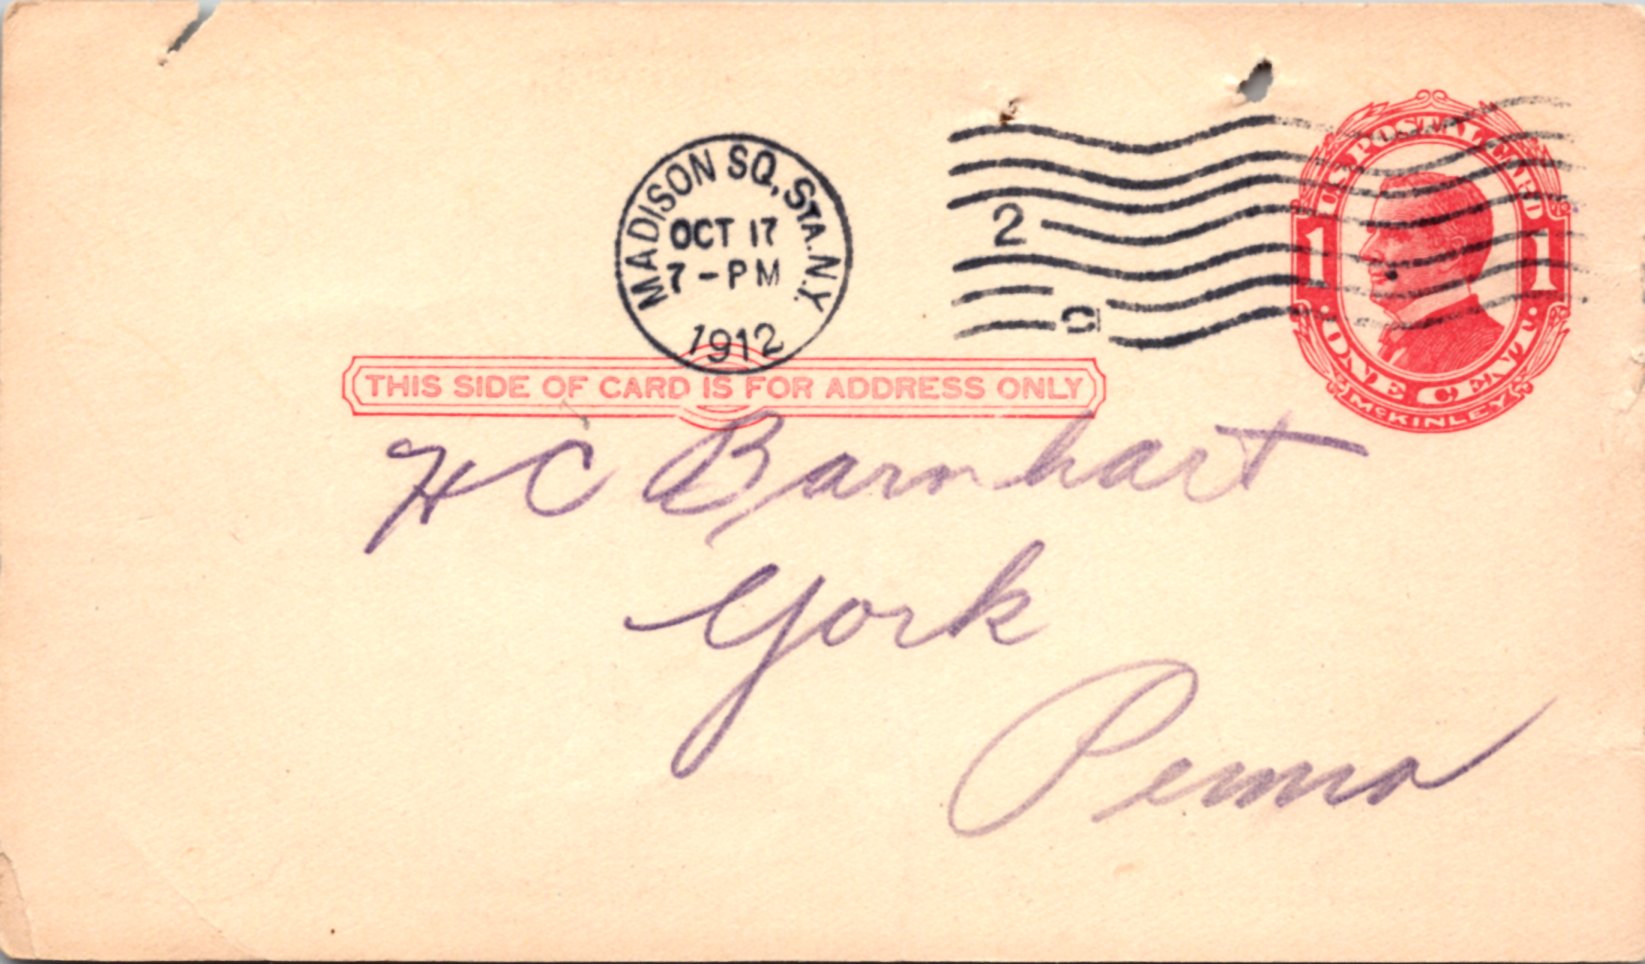 MADISON SQ. STA. N.Y.
OCT 17
7-PM
1912
2
U.S. POSTAL CARD
1 1
ONE CENT
McKINLEY
THIS SIDE OF CARD IS FOR ADDRESS ONLY
H C Barnhart
York
Penna